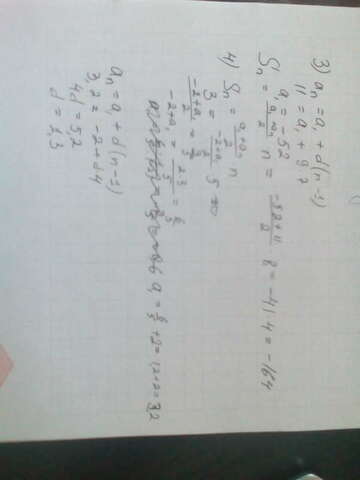 3) aₙ = a₁ + d(n-1)
11 = a₁ + 9·7
a₁ = -52
Sₙ = (a₁+aₙ)/2 n = (-52+11)/2 · 8 = -41·4 = -164
4) Sₙ = (a₁+aₙ)/2 n
3 = (-2+a₁)/2 5
(-2+a₁)/2 = 3/5
-2+a₁ = (2·3)/5 = 6/5
a₁ = 6/5 + 2 = 1,2+2 = 3,2
aₙ = a₁ + d(n-1)
3,2 = -2 + d·4
4d = 5,2
d = 1,3